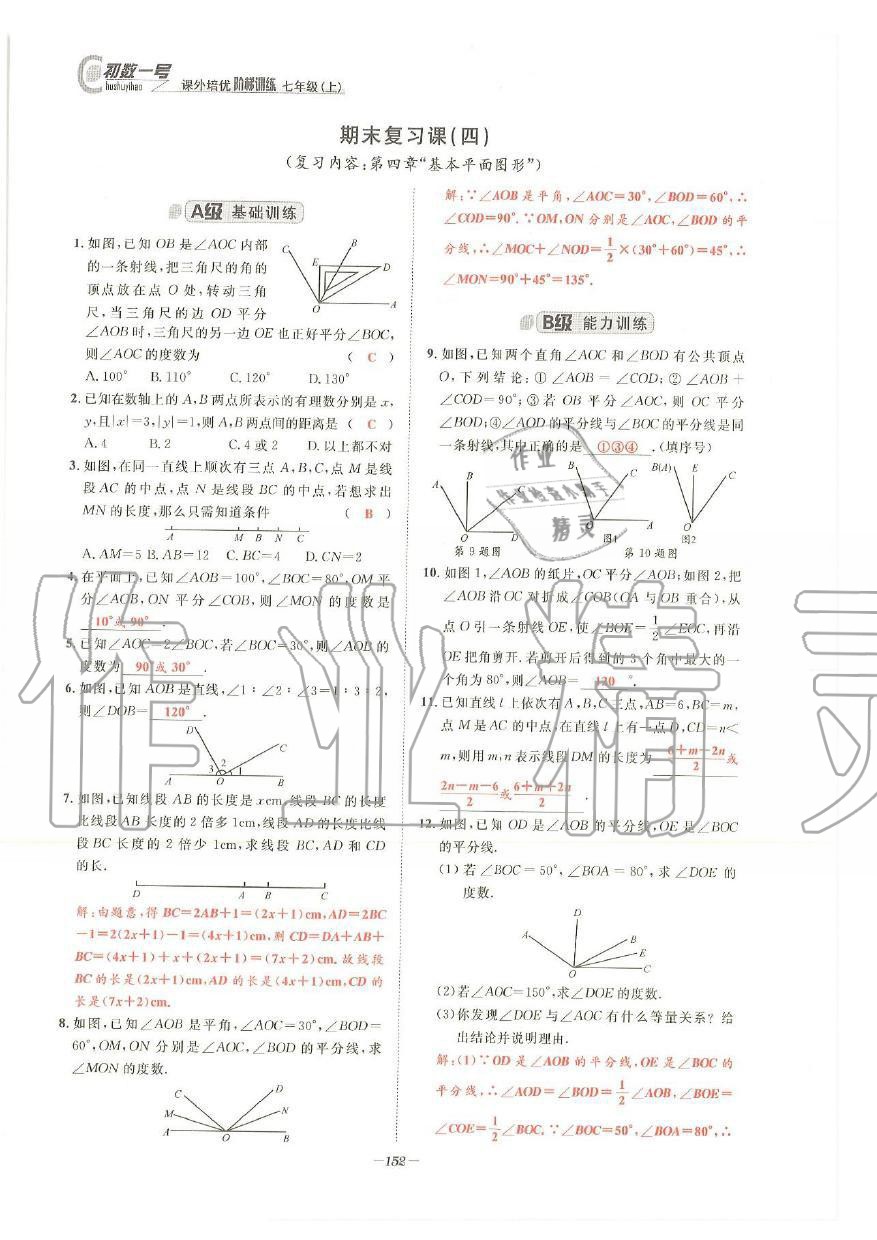 初数一号
Chushuyihao
课外培优 阶梯训练 七年级(上)
期末复习课(四)
(复习内容:第四章“基本平面图形”)
A级 基础训练
1. 如图,已知 OB 是∠AOC 内部
的一条射线,把三角尺的角的
顶点放在点 O 处,转动三角
尺,当三角尺的边 OD 平分
∠AOB时,三角尺的另一边 OE 也正好平分∠BOC,
则∠AOC的度数为 ( C )
C B E D O A
A. 100° B. 110° C. 120° D. 130°
2. 已知在数轴上的 A,B 两点所表示的有理数分别是 x,
y,且|x|=3,|y|=1,则 A,B 两点间的距离是 ( C )
A. 4 B. 2 C. 4 或 2 D. 以上都不对
3. 如图,在同一直线上顺次有三点 A,B,C,点 M 是线
段 AC 的中点,点 N 是线段 BC 的中点,若想求出
MN 的长度,那么只需知道条件 ( B )
A M B N C
A. AM=5 B. AB=12 C. BC=4 D. CN=2
4. 在平面上,已知∠AOB=100°,∠BOC=80°,OM 平
分∠AOB,ON 平分∠COB,则∠MON 的度数是
10°或90° .
5. 已知∠AOC=2∠BOC,若∠BOC=30°,则∠AOB的
度数为 90°或30° .
6. 如图,已知 AOB 是直线,∠1∶∠2∶∠3=1∶3∶2,
则∠DOB= 120° .
D C 3 2 1 A O B
7. 如图,已知线段 AB 的长度是 xcm,线段 BC 的长度
比线段 AB 长度的 2 倍多 1cm,线段 AD 的长度比线
段 BC 长度的 2 倍少 1cm,求线段 BC,AD 和 CD
的长.
D A B C
解:由题意,得 BC=2AB+1=(2x+1)cm,AD=2BC
-1=2(2x+1)-1=(4x+1)cm,则 CD=DA+AB+
BC=(4x+1)+x+(2x+1)=(7x+2)cm. 故线段
BC 的长是(2x+1)cm,AD 的长是(4x+1)cm,CD 的
长是(7x+2)cm.
8. 如图,已知∠AOB 是平角,∠AOC=30°,∠BOD=
60°,OM,ON 分别是∠AOC,∠BOD 的平分线,求
∠MON 的度数.
C D M N A O B
解:∵∠AOB 是平角,∠AOC=30°,∠BOD=60°,∴
∠COD=90°. ∵OM,ON 分别是∠AOC,∠BOD 的平
分线,∴∠MOC+∠NOD=1/2×(30°+60°)=45°,∴
∠MON=90°+45°=135°.
B级 能力训练
9. 如图,已知两个直角∠AOC 和∠BOD 有公共顶点
O,下列结论:①∠AOB=∠COD;②∠AOB+
∠COD=90°;③若 OB 平分∠AOC,则 OC 平分
∠BOD;④∠AOD的平分线与∠BOC的平分线是同
一条射线,其中正确的是 ①③④ .(填序号)
A B C O D
第 9 题图
A C O B 图1
B(A) E C O 图2
第 10 题图
10. 如图 1,∠AOB 的纸片,OC 平分∠AOB;如图 2,把
∠AOB 沿 OC 对折成∠COB(OA 与 OB 重合),从
点 O 引一条射线 OE,使∠BOE=1/2∠EOC,再沿
OE 把角剪开. 若剪开后得到的 3 个角中最大的一
个角为 80°,则∠AOB= 120 °.
11. 已知直线 l 上依次有 A,B,C 三点,AB=6,BC=m,
点 M 是 AC 的中点,在直线 l 上有一点 D,CD=n<
m,则用 m,n 表示线段 DM 的长度为 (6+m-2n)/2 或
(2n-m-6)/2 或 (6+m+2n)/2 .
12. 如图,已知 OD 是∠AOB 的平分线,OE 是∠BOC
的平分线.
(1) 若∠BOC=50°,∠BOA=80°,求∠DOE 的
度数.
D A B E O C
(2)若∠AOC=150°,求∠DOE 的度数.
(3)你发现∠DOE 与∠AOC 有什么等量关系?给
出结论并说明理由.
解:(1)∵OD 是∠AOB 的平分线,OE 是∠BOC 的
平分线,∴∠AOD=∠BOD=1/2∠AOB,∠BOE=
∠COE=1/2∠BOC. ∵∠BOC=50°,∠BOA=80°,∴
— 152 —
作业精灵
作业
作业检查小帮手
精灵